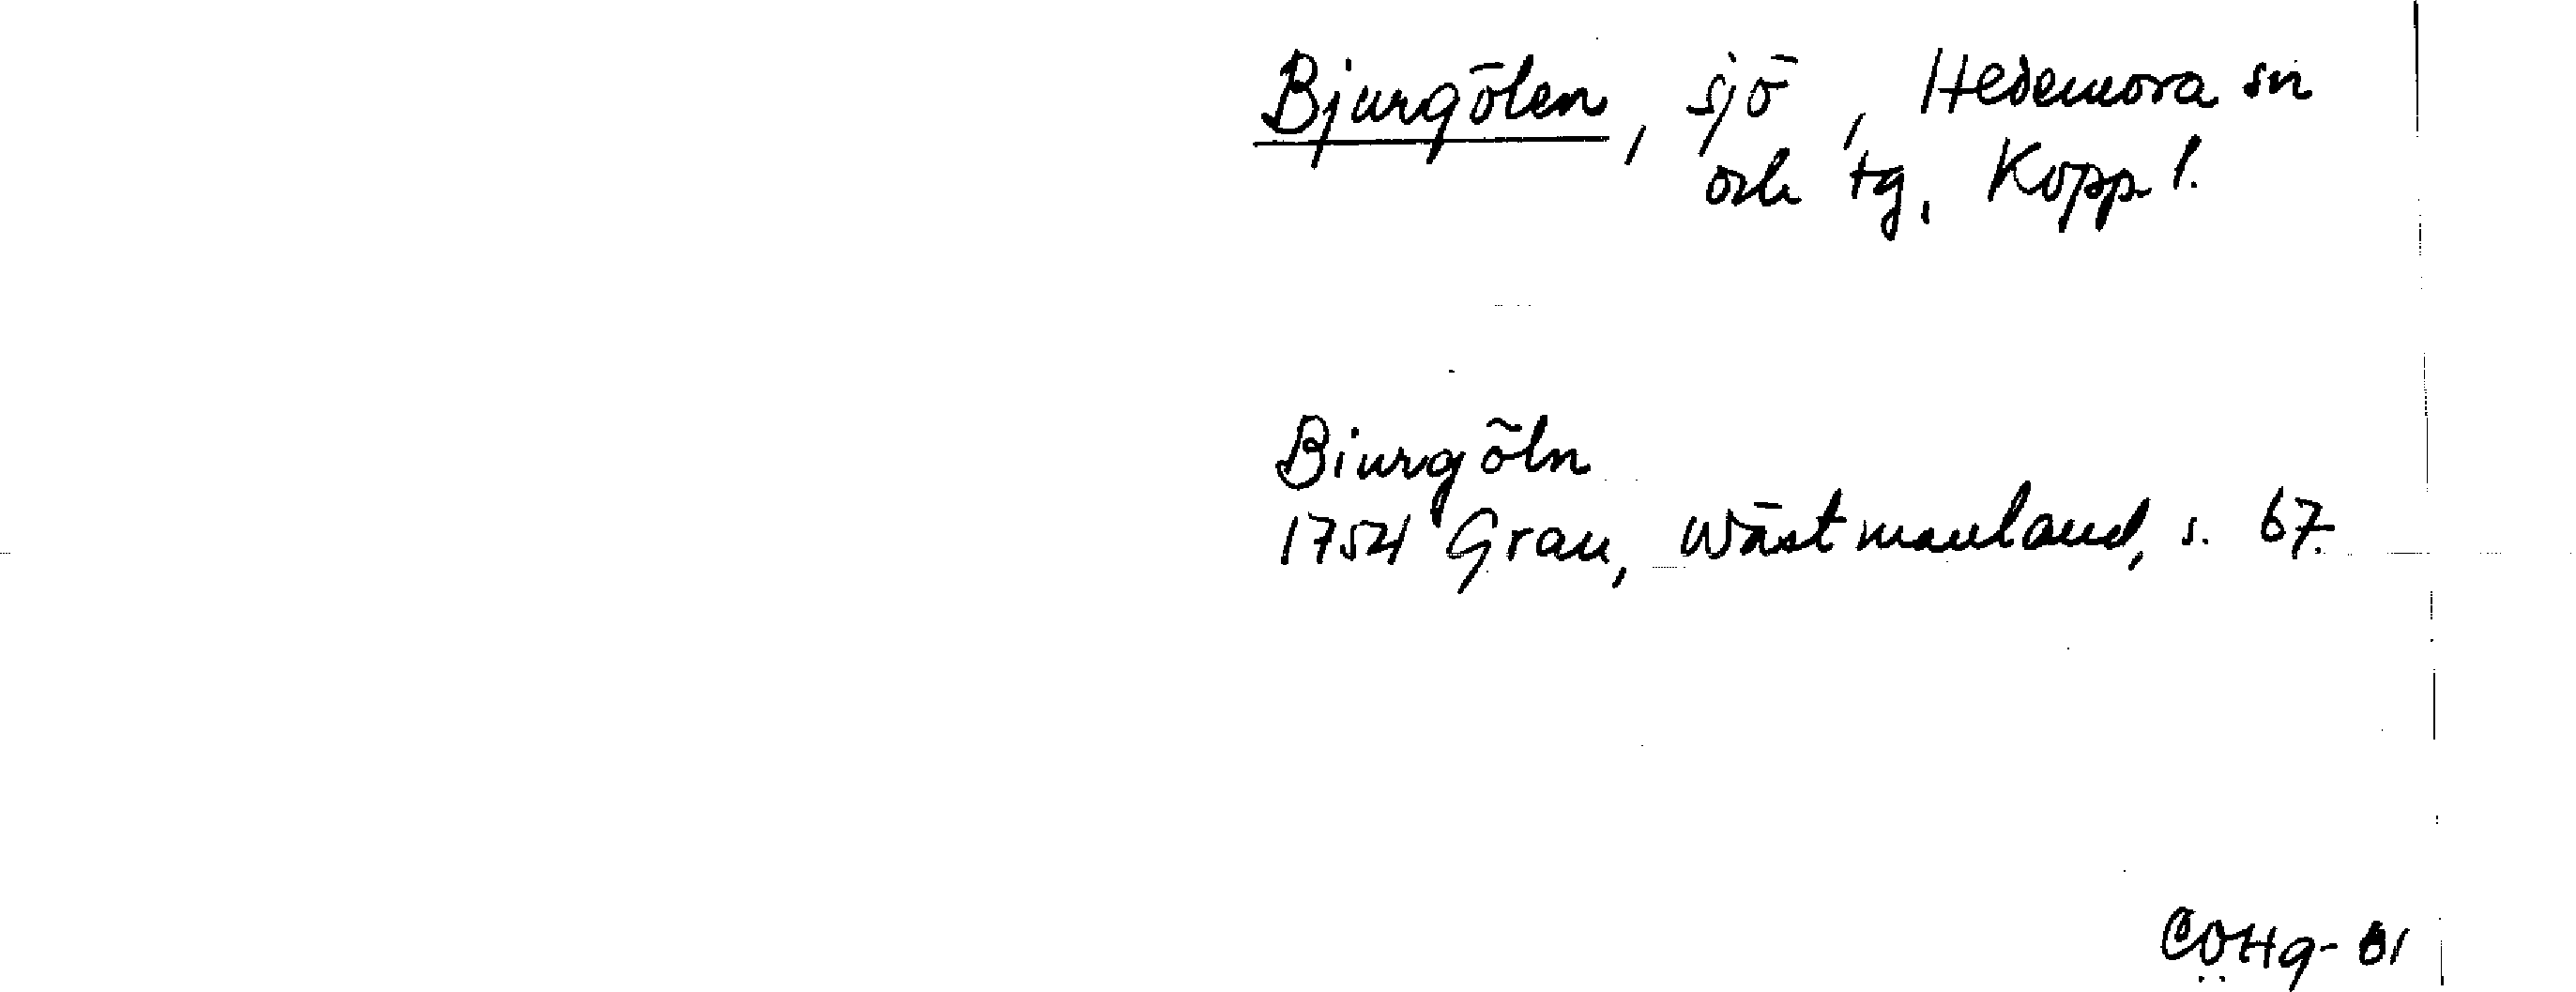 Bjurgölen, sjö, Hedemora sn
och tg, Kopp l.
Biurgöln
1754 Grau, Wästmanland, s. 67.